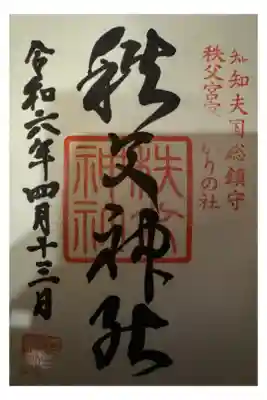 知知夫国総鎮守
秩父宮家
りの社
秩父神社
秩父神社
令和六年四月十三日